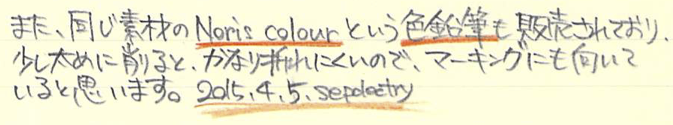 また、同じ素材の Noris colour という色鉛筆も販売されており、
少し太めに削ると、かなり折れにくいので、マーキングにも向いて
いると思います。2015.4.5. sepolectry